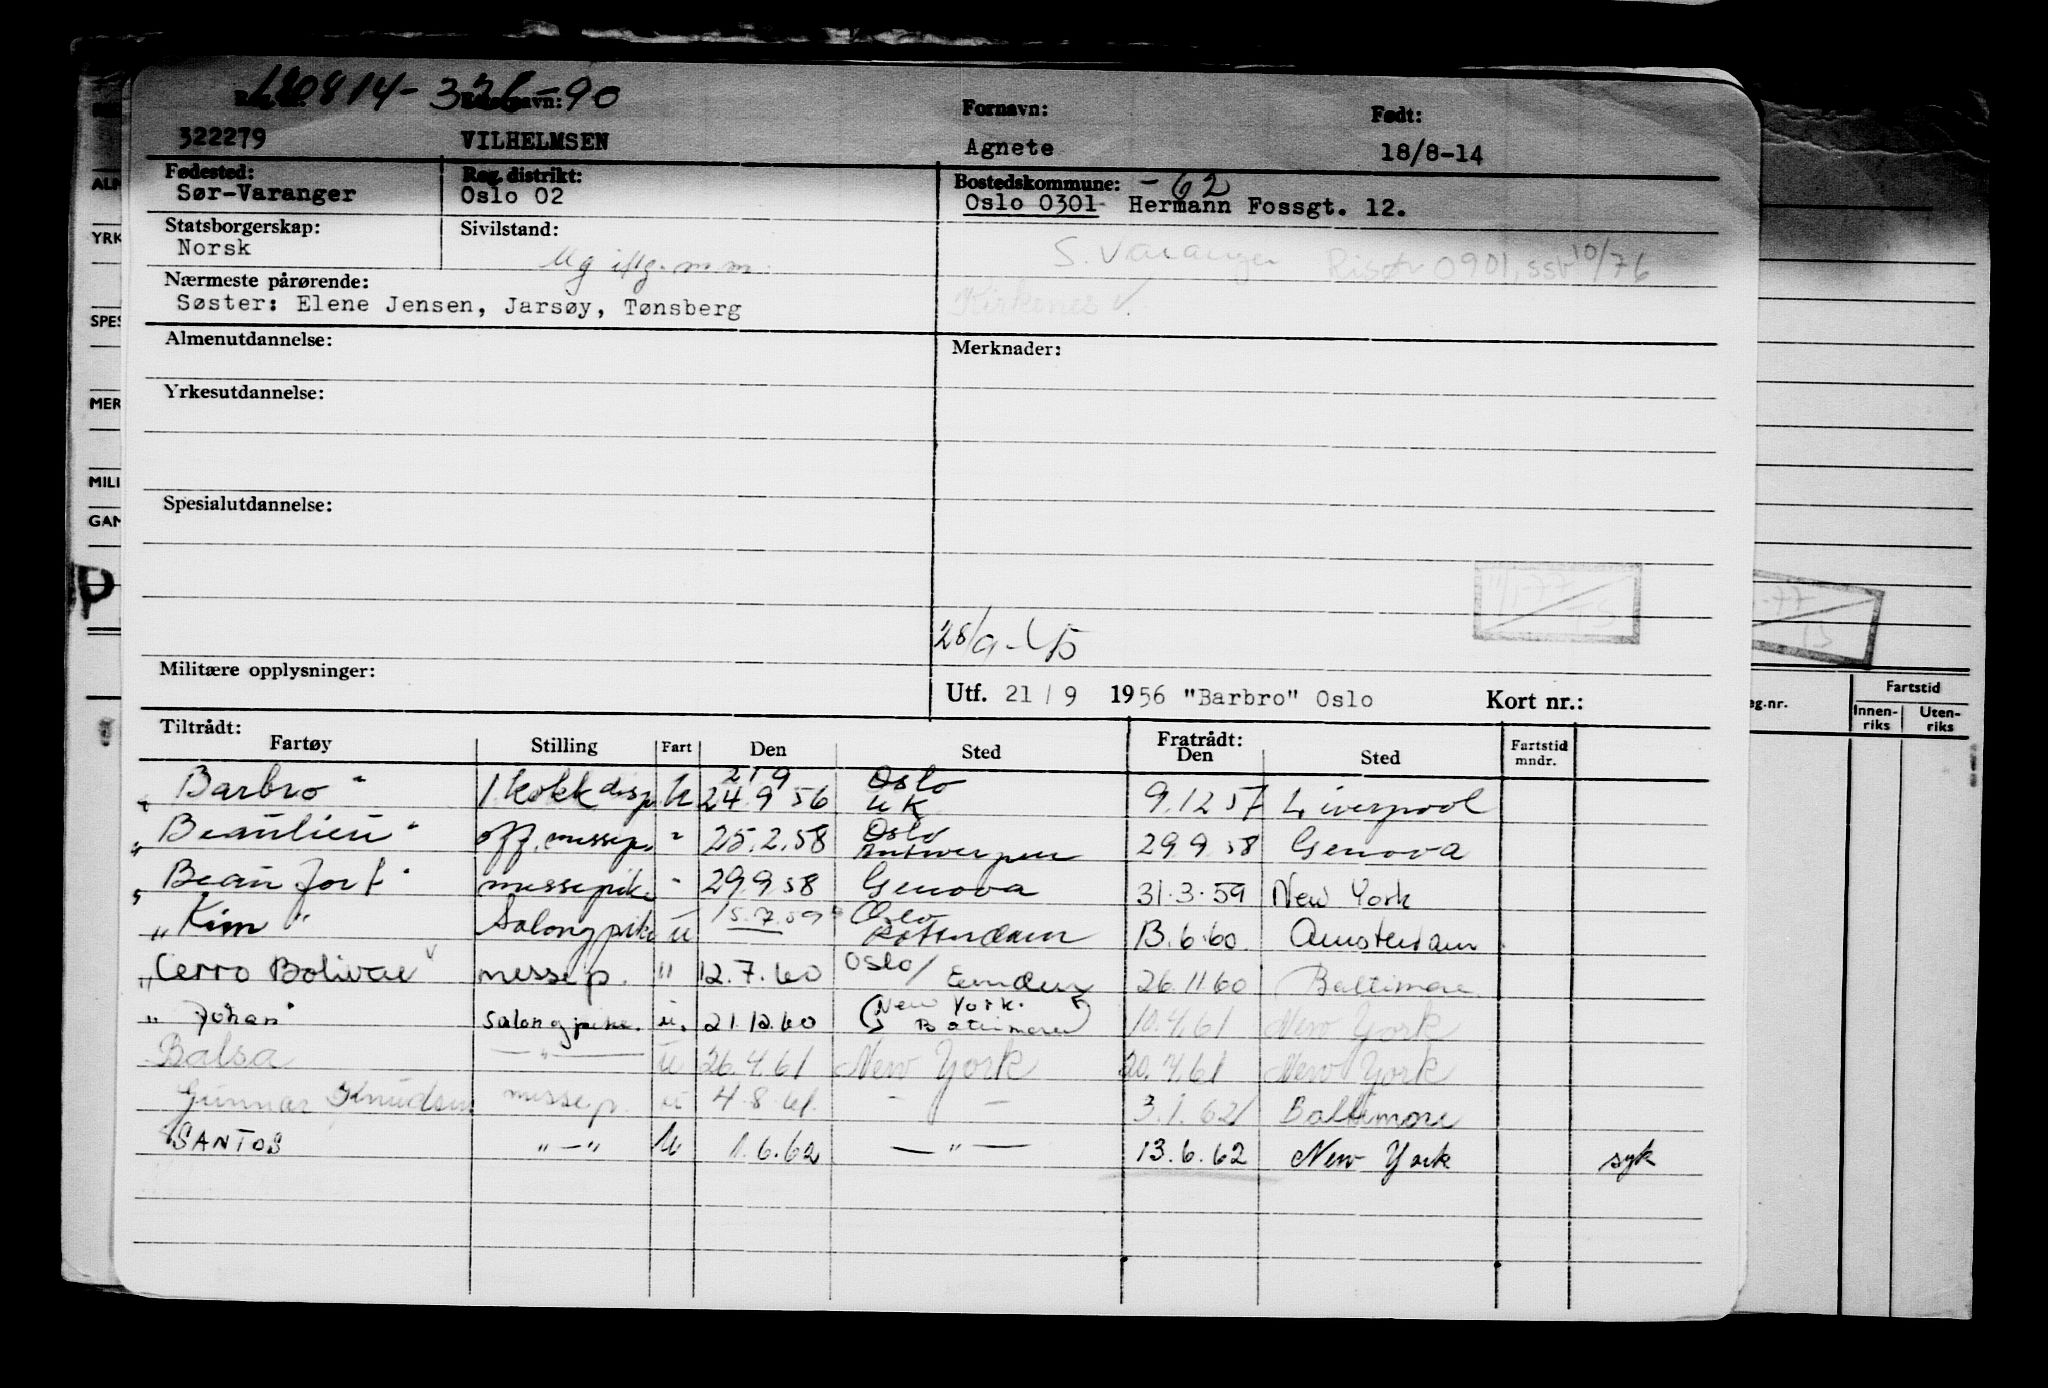 180814- -90
Fornavn: Født:
322279 VILHELMSEN Agnete 18/8-14
Fødested: Reg. distrikt: Bostedskommune: -62
Sør-Varanger Oslo 02 Oslo 0301- Hermann Fossgt. 12.
Statsborgerskap: Sivilstand:
Norsk Ug m.m. S. Varanger Risør 0901, 10/76
Nærmeste pårørende:
Søster: Elene Jensen, Jarsøy, Tønsberg Kirkenes
Almenutdannelse: Merknader:
Yrkesutdannelse:
MILI
Spesialutdannelse:
GAN
11/1-77
TS
28/9-
Militære opplysninger:
Utf. 21/9 1956 "Barbro" Oslo Kort nr.:
Tiltrådt: Fratrådt:
Fartøy Stilling Fart Den Sted Den Sted Fartstid mndr.
eg.nr. Fartstid
Innen-riks Uten-riks
21 9 Oslo
"Barbro" 1 kokk disp U 24.9 56 UK 9.12 57 Liverpool
"Beaulieu" off. messep. " 25.2.58 Oslo Antwerpen 29.9 58 Genova
"Beaufort" messepike " 29.9 58 Genova 31.3.59 New York
"Kim" Salongpike U 15.12.59 Oslo Rotterdam 13.6.60 Amsterdam
"Cerro Bolivar messep. " 12.7.60 Oslo/Emden 26.11 60 Baltimore
"Johan" salongpike. u. 21.12.60 (New York. Baltimore) 10.4.61 New York
Balsa —"— U 26.4.61 New York 20.7.61 New York
Gunnar Knudsen messep. u 4.8.61 — — 3.1.62 Baltimore
SANTOS "—" U 1.6.62 —"— 13.6.62 New York syk